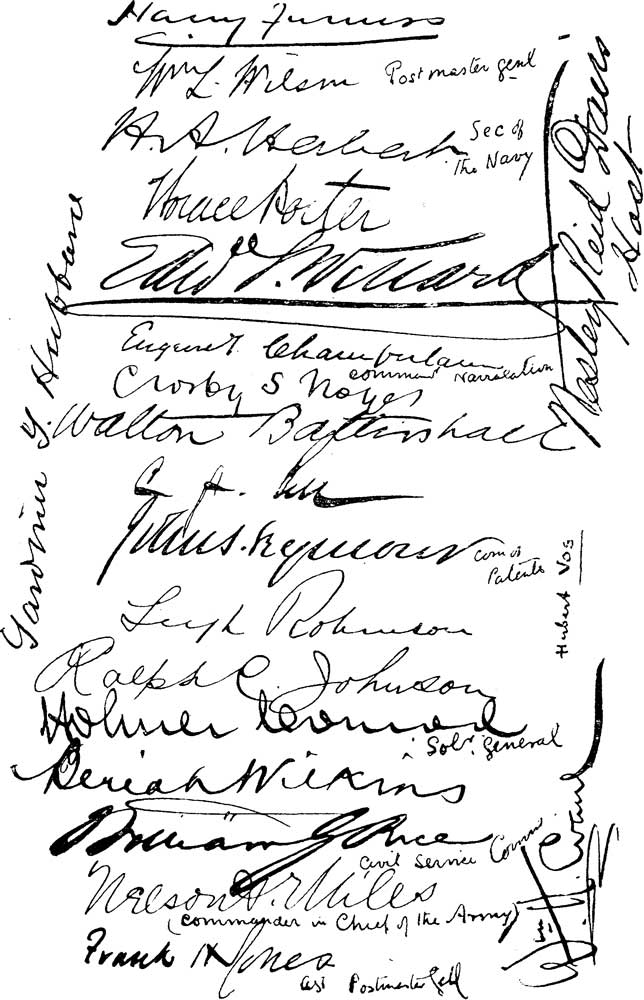 Harry Furniss
Wm L. Wilson Postmaster genl
H. A. Herbert Sec of The Navy
Horace Porter
Edwd L. Willard
Eugene T. Chamberlain
comms Navigation
Crosby S Noyes
Walton Battershall
John S. Seymour com of Patents
Leigh Robinson
Ralph C. Johnson
Holmes Conrad
Solr. General
Beriah Wilkins
William G Rice
Civil Service Comm
Nelson A. Miles
(Commander in Chief of the Army)
Frank H Jones
asst Postmaster Genl
Gardiner G Hubbard
Nasley Reid Davis
Host
Hubert Vos
Evans